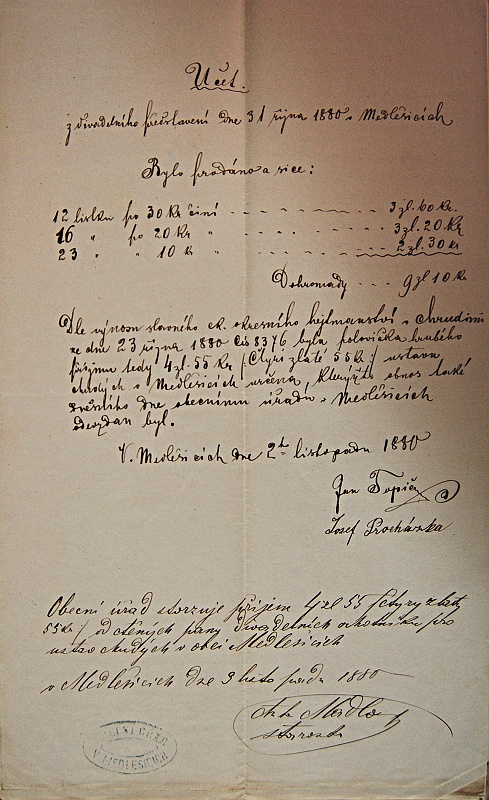 Účet.
z divadelního představení dne 31 října 1880 v Medlešicích
Bylo prodáno a sice:
12 lístků po 30 Kr činí - - - - - - 3 zl. 60 kr.
16 " po 20 Kr " - - - - - - 3 zl. 20 Kr
23 " " 10 kr " - - - - - - 2 zl. 30 kr
Dohromady - - - 9 zl 10 kr
Dle výnosu slavného ck. okresního hejtmanství v Chrudimi
ze dne 23 října 1880 čís 8376 byla polovička hrubého
příjmu tedy 4 zl. 55 kr / Čtyři zlaté 55 k / ústavu
chudých v Medlešicích určena, kterýžto obnos také
dnešního dne obecnímu úřadu v Medlešicích
odevzdán byl.
V. Medlešicích dne 2ho listopadu 1880
Jan Topič
Josef Procházka
Obecní úřad stvrzuje příjem 4 zl 55 / čtyry zlatý
55 kr / od ctěných pany divadelních ochotníku pro
ustav chudých v obci Medlešicích
v Medlešicích dne 3 listopadu 1880
Mádlo
starosta
OBECNÍ ÚŘAD
V MEDLEŠICÍCH